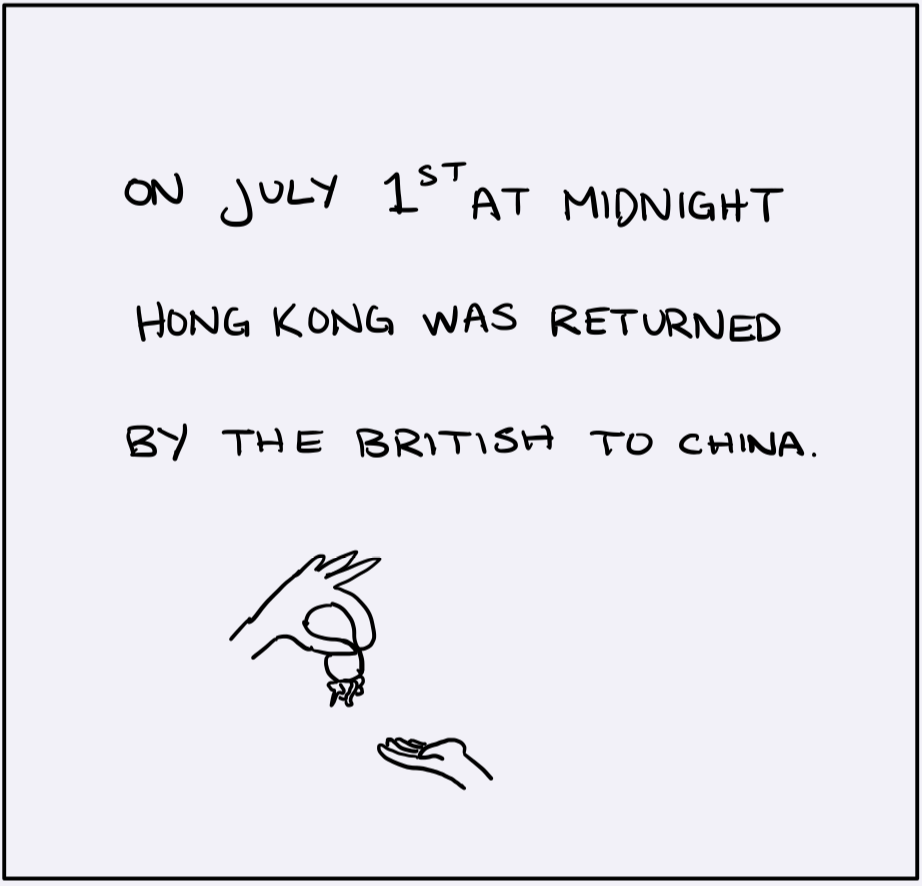 ON JULY 1ST AT MIDNIGHT
HONG KONG WAS RETURNED
BY THE BRITISH TO CHINA.